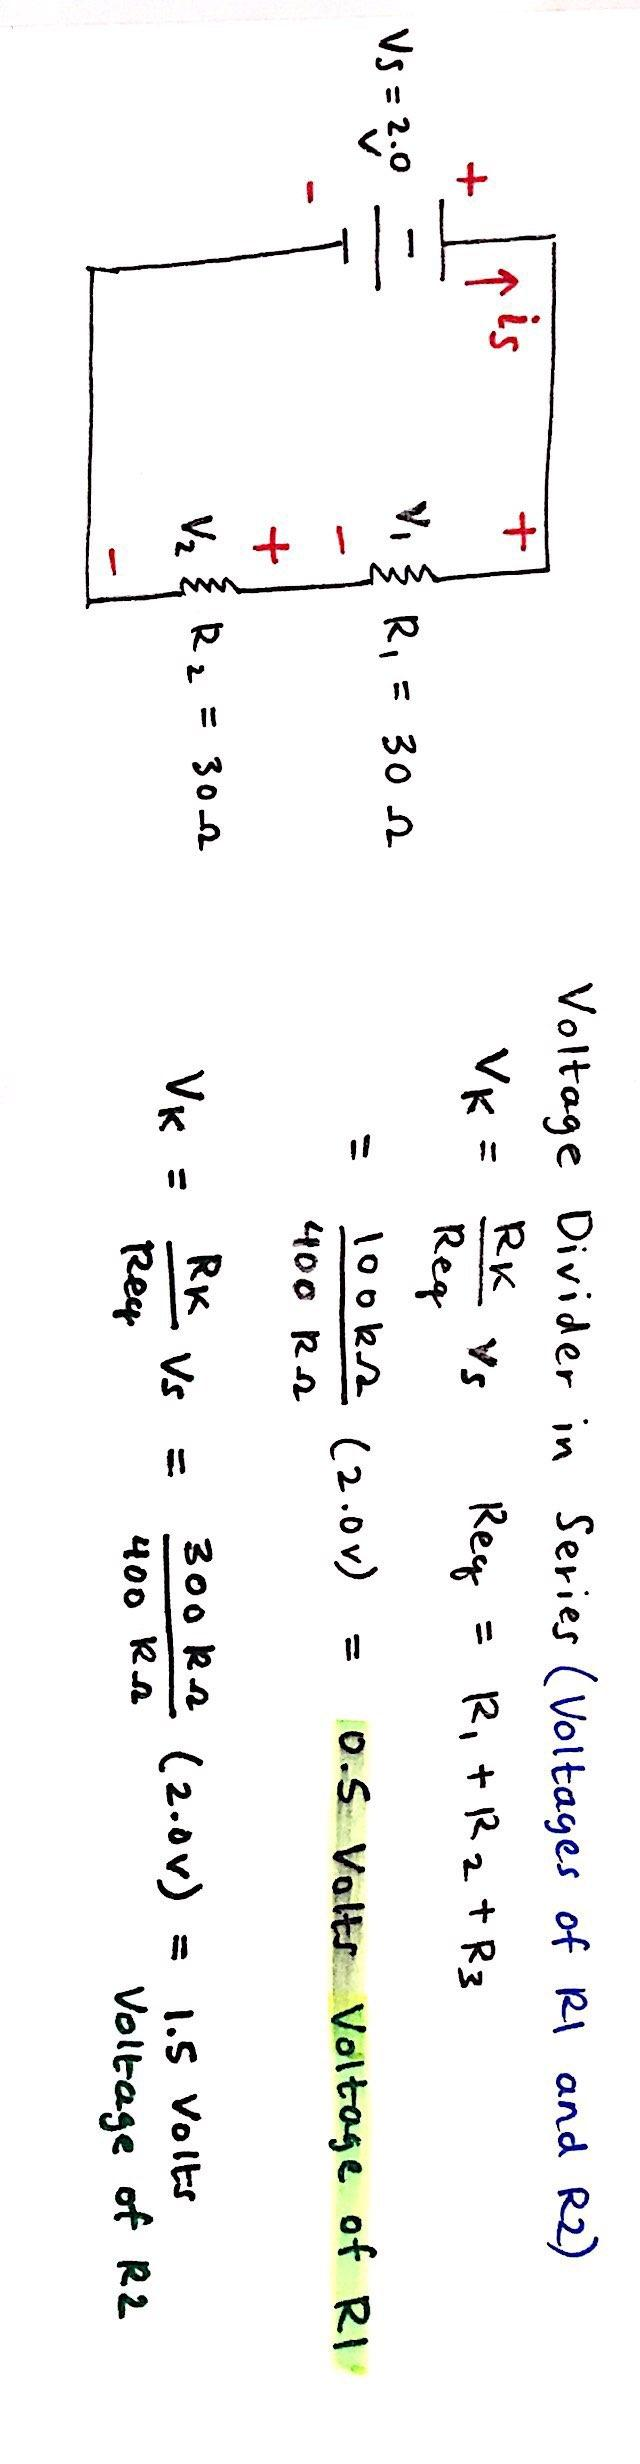 Vs = 2.0
V
+
-
is
+
V1
R1 = 30 Ω
-
+
V2
R2 = 30Ω
-
Voltage Divider in Series (Voltages of R1 and R2)
VK = RK/Req Vs Req = R1 + R2 + R3
= 100kΩ/400 kΩ (2.0v) = 0.5 Volts Voltage of R1
VK = RK/Req Vs = 300 kΩ/400 kΩ (2.0v) = 1.5 Volts
Voltage of R2